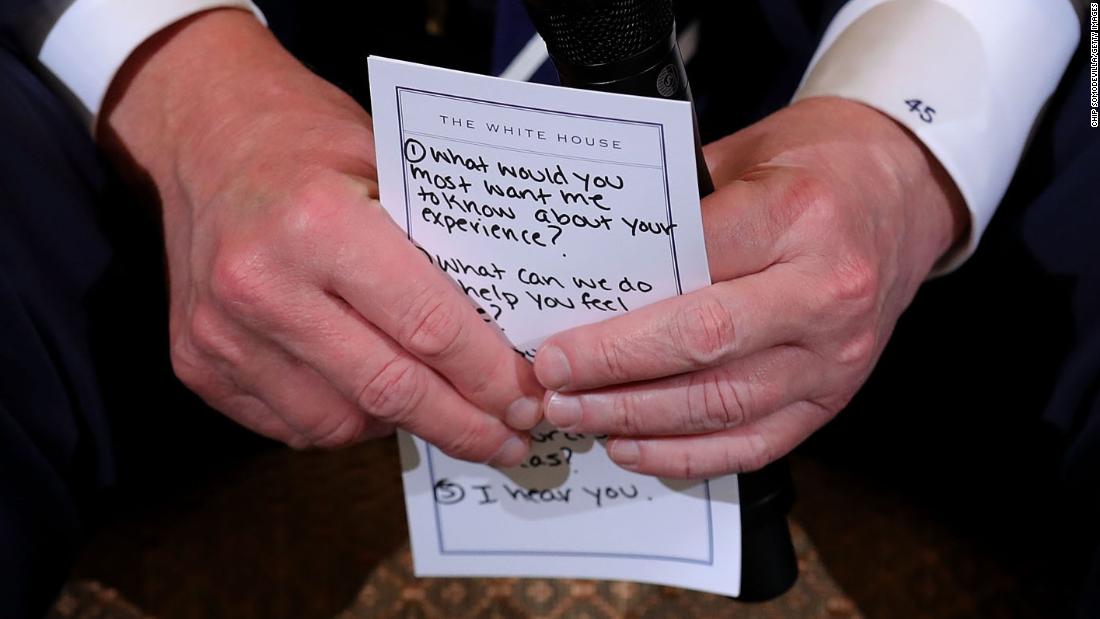 THE WHITE HOUSE
① What would you
most want me
to know about your
experience?
What can we do
help you feel
?
?
⑤ I hear you.
45
CHIP SOMODEVILLA/GETTY IMAGES